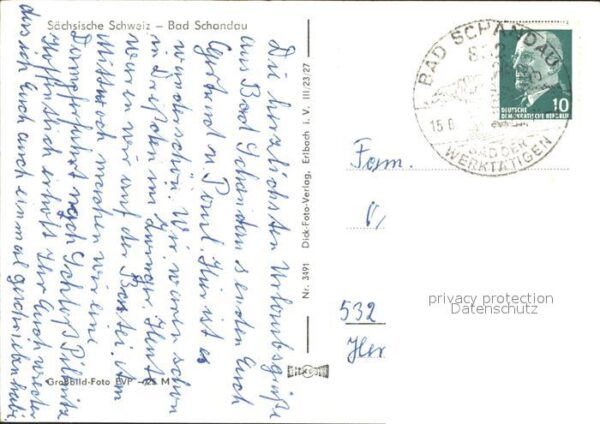 Sächsische Schweiz – Bad Schandau
Die herzlichsten Urlaubsgrüße
aus Bad Schandau senden Euch
Gerhard u. Paul. Hier ist es
wunderschön. Wir waren schon
in Dresden im Zwinger. Heute
waren wir auf der Bastei. Am
Mittwoch machen wir eine
Dampferfahrt nach Schloß Pillnitz
Hoffentlich erholt Ihr Euch wieder
das ich Euch auch einmal geschrieben habe
Großbild-Foto EVP –,25 M
Nr. 3491 Dick-Foto-Verlag, Erlbach i. V. III/23/27
BAD SCHANDAU
832
15.6
BAD DER
WERKTÄTIGEN
DEUTSCHE
DEMOKRATISCHE REPUBLIK
10
Fam.
532
Her
privacy protection
Datenschutz